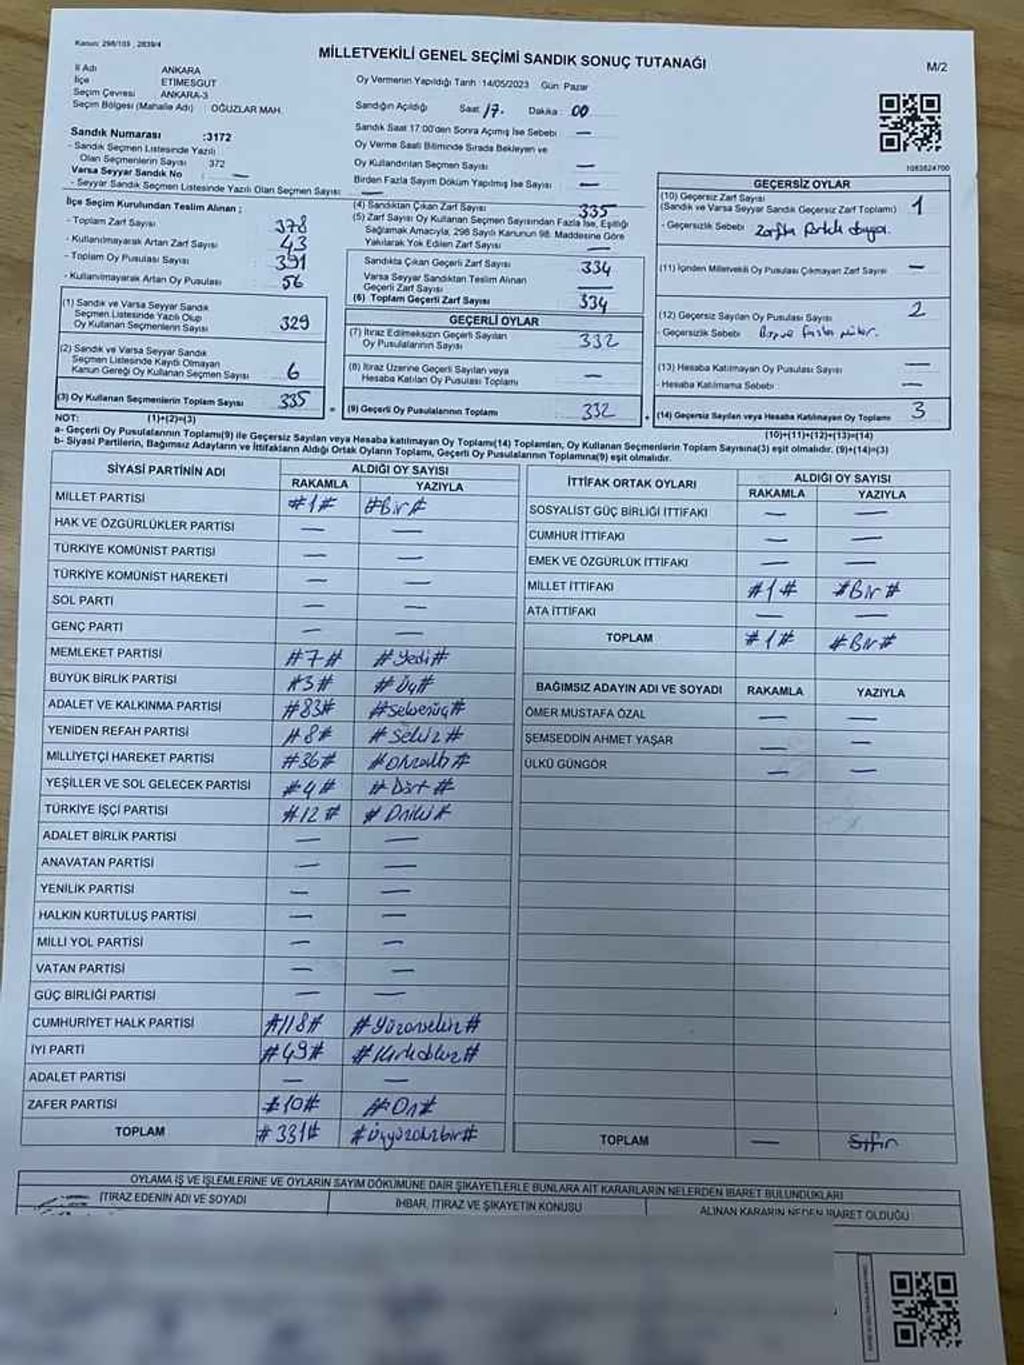 Kanun: 298/105 , 2839/4
MİLLETVEKİLİ GENEL SEÇİMİ SANDIK SONUÇ TUTANAĞI
M/2
İl Adı ANKARA
İlçe ETİMESGUT
Seçim Çevresi ANKARA-3
Seçim Bölgesi (Mahalle Adı) OĞUZLAR MAH.
Sandık Numarası :3172
- Sandık Seçmen Listesinde Yazılı
Olan Seçmenlerin Sayısı 372
Varsa Seyyar Sandık No : —
- Seyyar Sandık Seçmen Listesinde Yazılı Olan Seçmen Sayısı: —
Oy Vermenin Yapıldığı Tarih :14/05/2023 Gün: Pazar
Sandığın Açıldığı Saat: 17. Dakika: 00
Sandık Saat 17:00'den Sonra Açımış İse Sebebi —
Oy Verme Saati Bitiminde Sırada Bekleyen ve
Oy Kullandırılan Seçmen Sayısı —
Birden Fazla Sayım Döküm Yapılmış İse Sayısı —
1083624700
İlçe Seçim Kurulundan Teslim Alınan ;
- Toplam Zarf Sayısı 378
- Kullanılmayarak Artan Zarf Sayısı 43
- Toplam Oy Pusulası Sayısı 391
- Kullanılmayarak Artan Oy Pusulası 56
(1) Sandık ve Varsa Seyyar Sandık
Seçmen Listesinde Yazılı Olup
Oy Kullanan Seçmenlerin Sayısı 329
(2) Sandık ve Varsa Seyyar Sandık
Seçmen Listesinde Kayıtlı Olmayan
Kanun Gereği Oy Kullanan Seçmen Sayısı 6
(3) Oy Kullanan Seçmenlerin Toplam Sayısı 335
(4) Sandıktan Çıkan Zarf Sayısı 335
(5) Zarf Sayısı Oy Kullanan Seçmen Sayısından Fazla İse, Eşitliği
Sağlamak Amacıyla, 298 Sayılı Kanunun 98. Maddesine Göre
Yakılarak Yok Edilen Zarf Sayısı —
Sandıkta Çıkan Geçerli Zarf Sayısı 334
Varsa Seyyar Sandıktan Teslim Alınan
Geçerli Zarf Sayısı —
(6) Toplam Geçerli Zarf Sayısı 334
GEÇERLİ OYLAR
(7) İtiraz Edilmeksizin Geçerli Sayılan
Oy Pusulalarının Sayısı 332
(8) İtiraz Üzerine Geçerli Sayılan veya
Hesaba Katılan Oy Pusulası Toplamı —
(9) Geçerli Oy Pusulalarının Toplamı 332
GEÇERSİZ OYLAR
(10) Geçersiz Zarf Sayısı
(Sandık ve Varsa Seyyar Sandık Geçersiz Zarf Toplamı) 1
- Geçersizlik Sebebi
(11) İçinden Milletvekili Oy Pusulası Çıkmayan Zarf Sayısı —
(12) Geçersiz Sayılan Oy Pusulası Sayısı 2
- Geçersizlik Sebebi
(13) Hesaba Katılmayan Oy Pusulası Sayısı —
- Hesaba Katılmama Sebebi —
(14) Geçersiz Sayılan veya Hesaba Katılmayan Oy Toplamı 3
NOT: (1)+(2)=(3) (10)+(11)+(12)+(13)=(14)
a- Geçerli Oy Pusulalarının Toplamı(9) ile Geçersiz Sayılan veya Hesaba katılmayan Oy Toplamı(14) Toplamları, Oy Kullanan Seçmenlerin Toplam Sayısına(3) eşit olmalıdır. (9)+(14)=(3)
b- Siyasi Partilerin, Bağımsız Adayların ve İttifakların Aldığı Ortak Oyların Toplamı, Geçerli Oy Pusulalarının Toplamına(9) eşit olmalıdır.
SİYASİ PARTİNİN ADI ALDIĞI OY SAYISI
RAKAMLA YAZIYLA
MİLLET PARTİSİ #1# #Bir#
HAK VE ÖZGÜRLÜKLER PARTİSİ — —
TÜRKİYE KOMÜNİST PARTİSİ — —
TÜRKİYE KOMÜNİST HAREKETİ — —
SOL PARTİ — —
GENÇ PARTİ — —
MEMLEKET PARTİSİ #7# #Yedi#
BÜYÜK BİRLİK PARTİSİ #3# #Üç#
ADALET VE KALKINMA PARTİSİ #83# #Seksenüç#
YENİDEN REFAH PARTİSİ #8# #Sekiz#
MİLLİYETÇİ HAREKET PARTİSİ #36# #Otuzaltı#
YEŞİLLER VE SOL GELECEK PARTİSİ #4# #Dört#
TÜRKİYE İŞÇİ PARTİSİ #12# #Oniki#
ADALET BİRLİK PARTİSİ — —
ANAVATAN PARTİSİ — —
YENİLİK PARTİSİ — —
HALKIN KURTULUŞ PARTİSİ — —
MİLLİ YOL PARTİSİ — —
VATAN PARTİSİ — —
GÜÇ BİRLİĞİ PARTİSİ — —
CUMHURİYET HALK PARTİSİ #118# #Yüzonsekiz#
İYİ PARTİ #49# #Kırkdokuz#
ADALET PARTİSİ — —
ZAFER PARTİSİ #10# #On#
TOPLAM #331# #Üçyüzotuzbir#
İTTİFAK ORTAK OYLARI ALDIĞI OY SAYISI
RAKAMLA YAZIYLA
SOSYALİST GÜÇ BİRLİĞİ İTTİFAKI — —
CUMHUR İTTİFAKI — —
EMEK VE ÖZGÜRLÜK İTTİFAKI — —
MİLLET İTTİFAKI #1# #Bir#
ATA İTTİFAKI — —
TOPLAM #1# #Bir#
BAĞIMSIZ ADAYIN ADI VE SOYADI RAKAMLA YAZIYLA
ÖMER MUSTAFA ÖZAL — —
ŞEMSEDDİN AHMET YAŞAR — —
ÜLKÜ GÜNGÖR — —
TOPLAM — Sıfır
OYLAMA İŞ VE İŞLEMLERİNE VE OYLARIN SAYIM DÖKÜMÜNE DAİR ŞİKAYETLERLE BUNLARA AİT KARARLARIN NELERDEN İBARET BULUNDUKLARI
İTİRAZ EDENİN ADI VE SOYADI İHBAR, İTİRAZ VE ŞİKAYETİN KONUSU ALINAN KARARIN NEDEN İBARET OLDUĞU